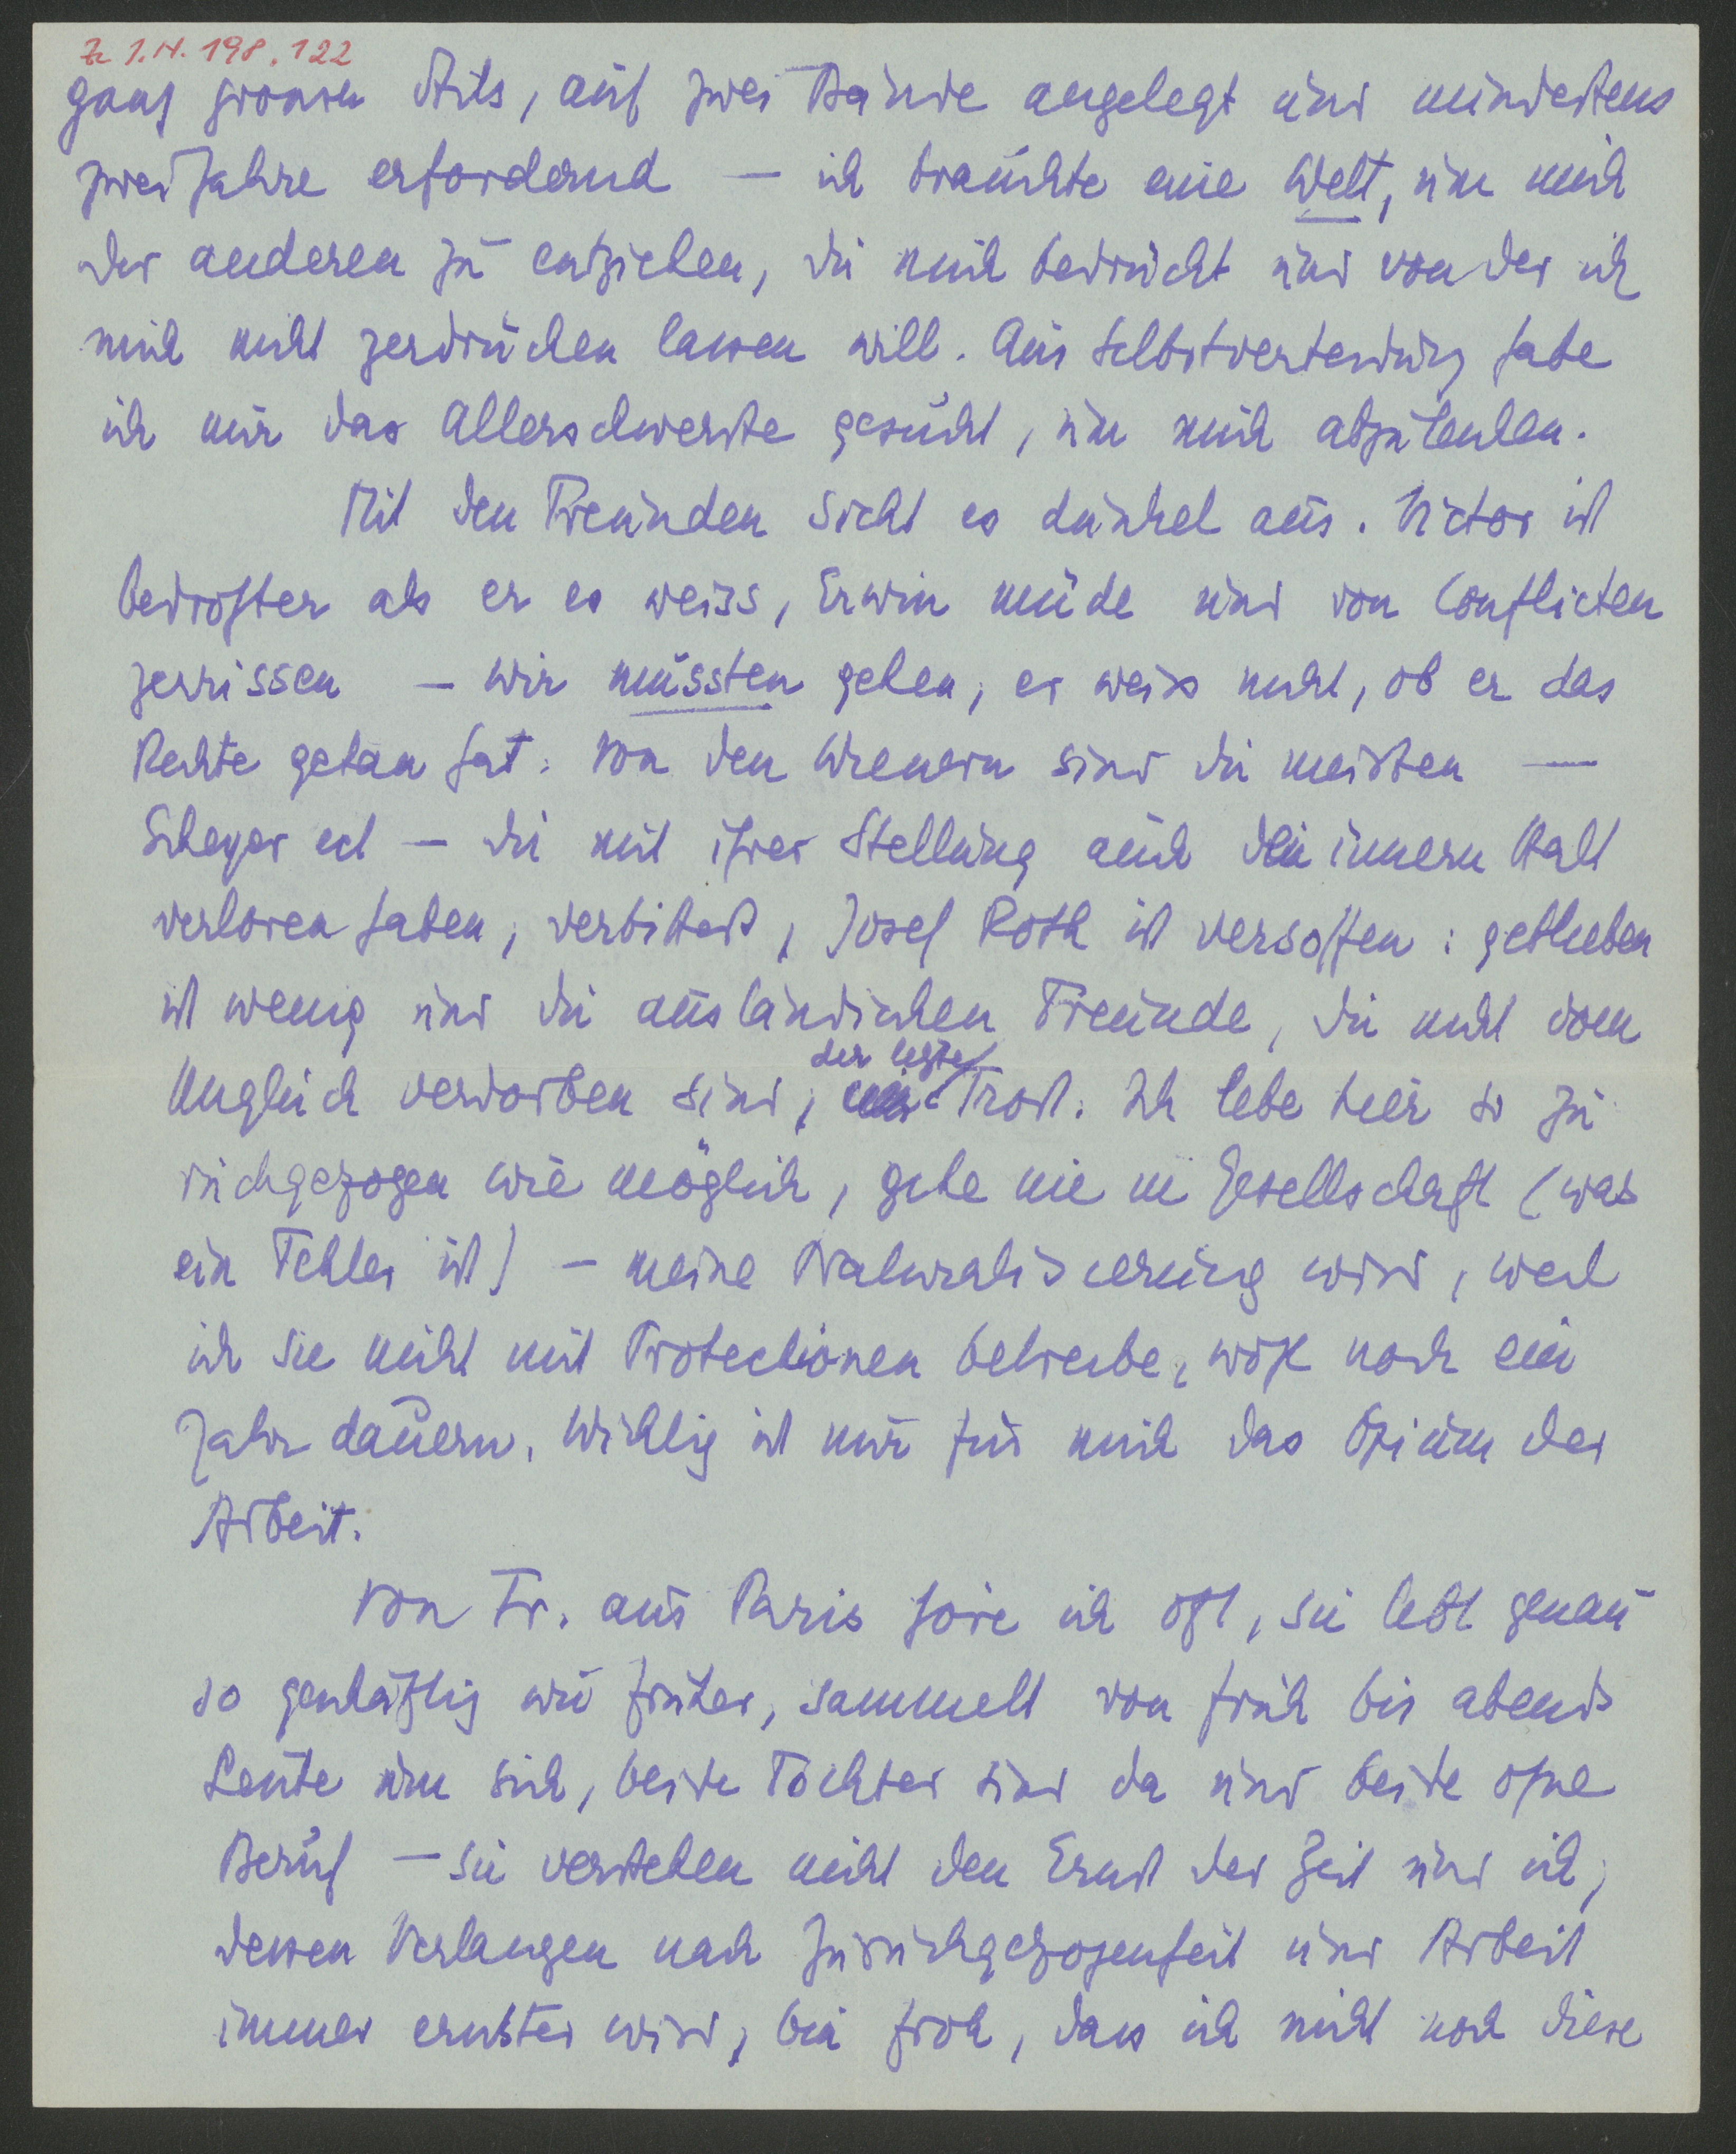 Zr I.N. 198.122
ganz grossen Stils, auf zwei Bände angelegt und mindestens
zwei Jahre erfordernd — ich brauchte eine Welt, um mich
der anderen zu entziehen, die mich bedrückt und von der ich
mich nicht zerdrücken lassen will. Aus Selbstverteidung habe
ich mir das Allerschwerste gesucht, um mich abzulenken.
Mit den Freunden sieht es dunkel aus. Victor ist
bedrohter als er es weiss, Erwin müde und von Conflicten
zerrissen — wir müssten gehen, er weiss nicht, ob er das
Rechte getan hat. Von den Wienern sind die meisten —
Scheyer ect — die mit ihrer Stellung auch den innern Halt
verloren haben, verbittert, Josef Roth ist versoffen: geblieben
ist wenig und die ausländischen Freunde, die nicht vom
der letzte
Unglück verdorben sind, ein Trost. Ich lebe hier so zu
rückgezogen wie möglich, gehe nie in Gesellschaft (was
ein Fehler ist) — meine Naturalisierung wird, weil
ich sie nicht mit Protectionen betreibe, wohl noch ein
Jahr dauern. Wichtig ist nur für mich das Opium der
Arbeit.
Von Fr. aus Paris höre ich oft, sie lebt genau
so geschäftig wie früher, sammelt von früh bis abends
Leute um sich, beide Töchter sind da und beide ohne
Beruf — sie verstehen nicht den Ernst der Zeit und ich,
dessen Verlangen nach Zurückgezogenheit und Arbeit
immer ernster wird, bin froh, dass ich nicht noch diese